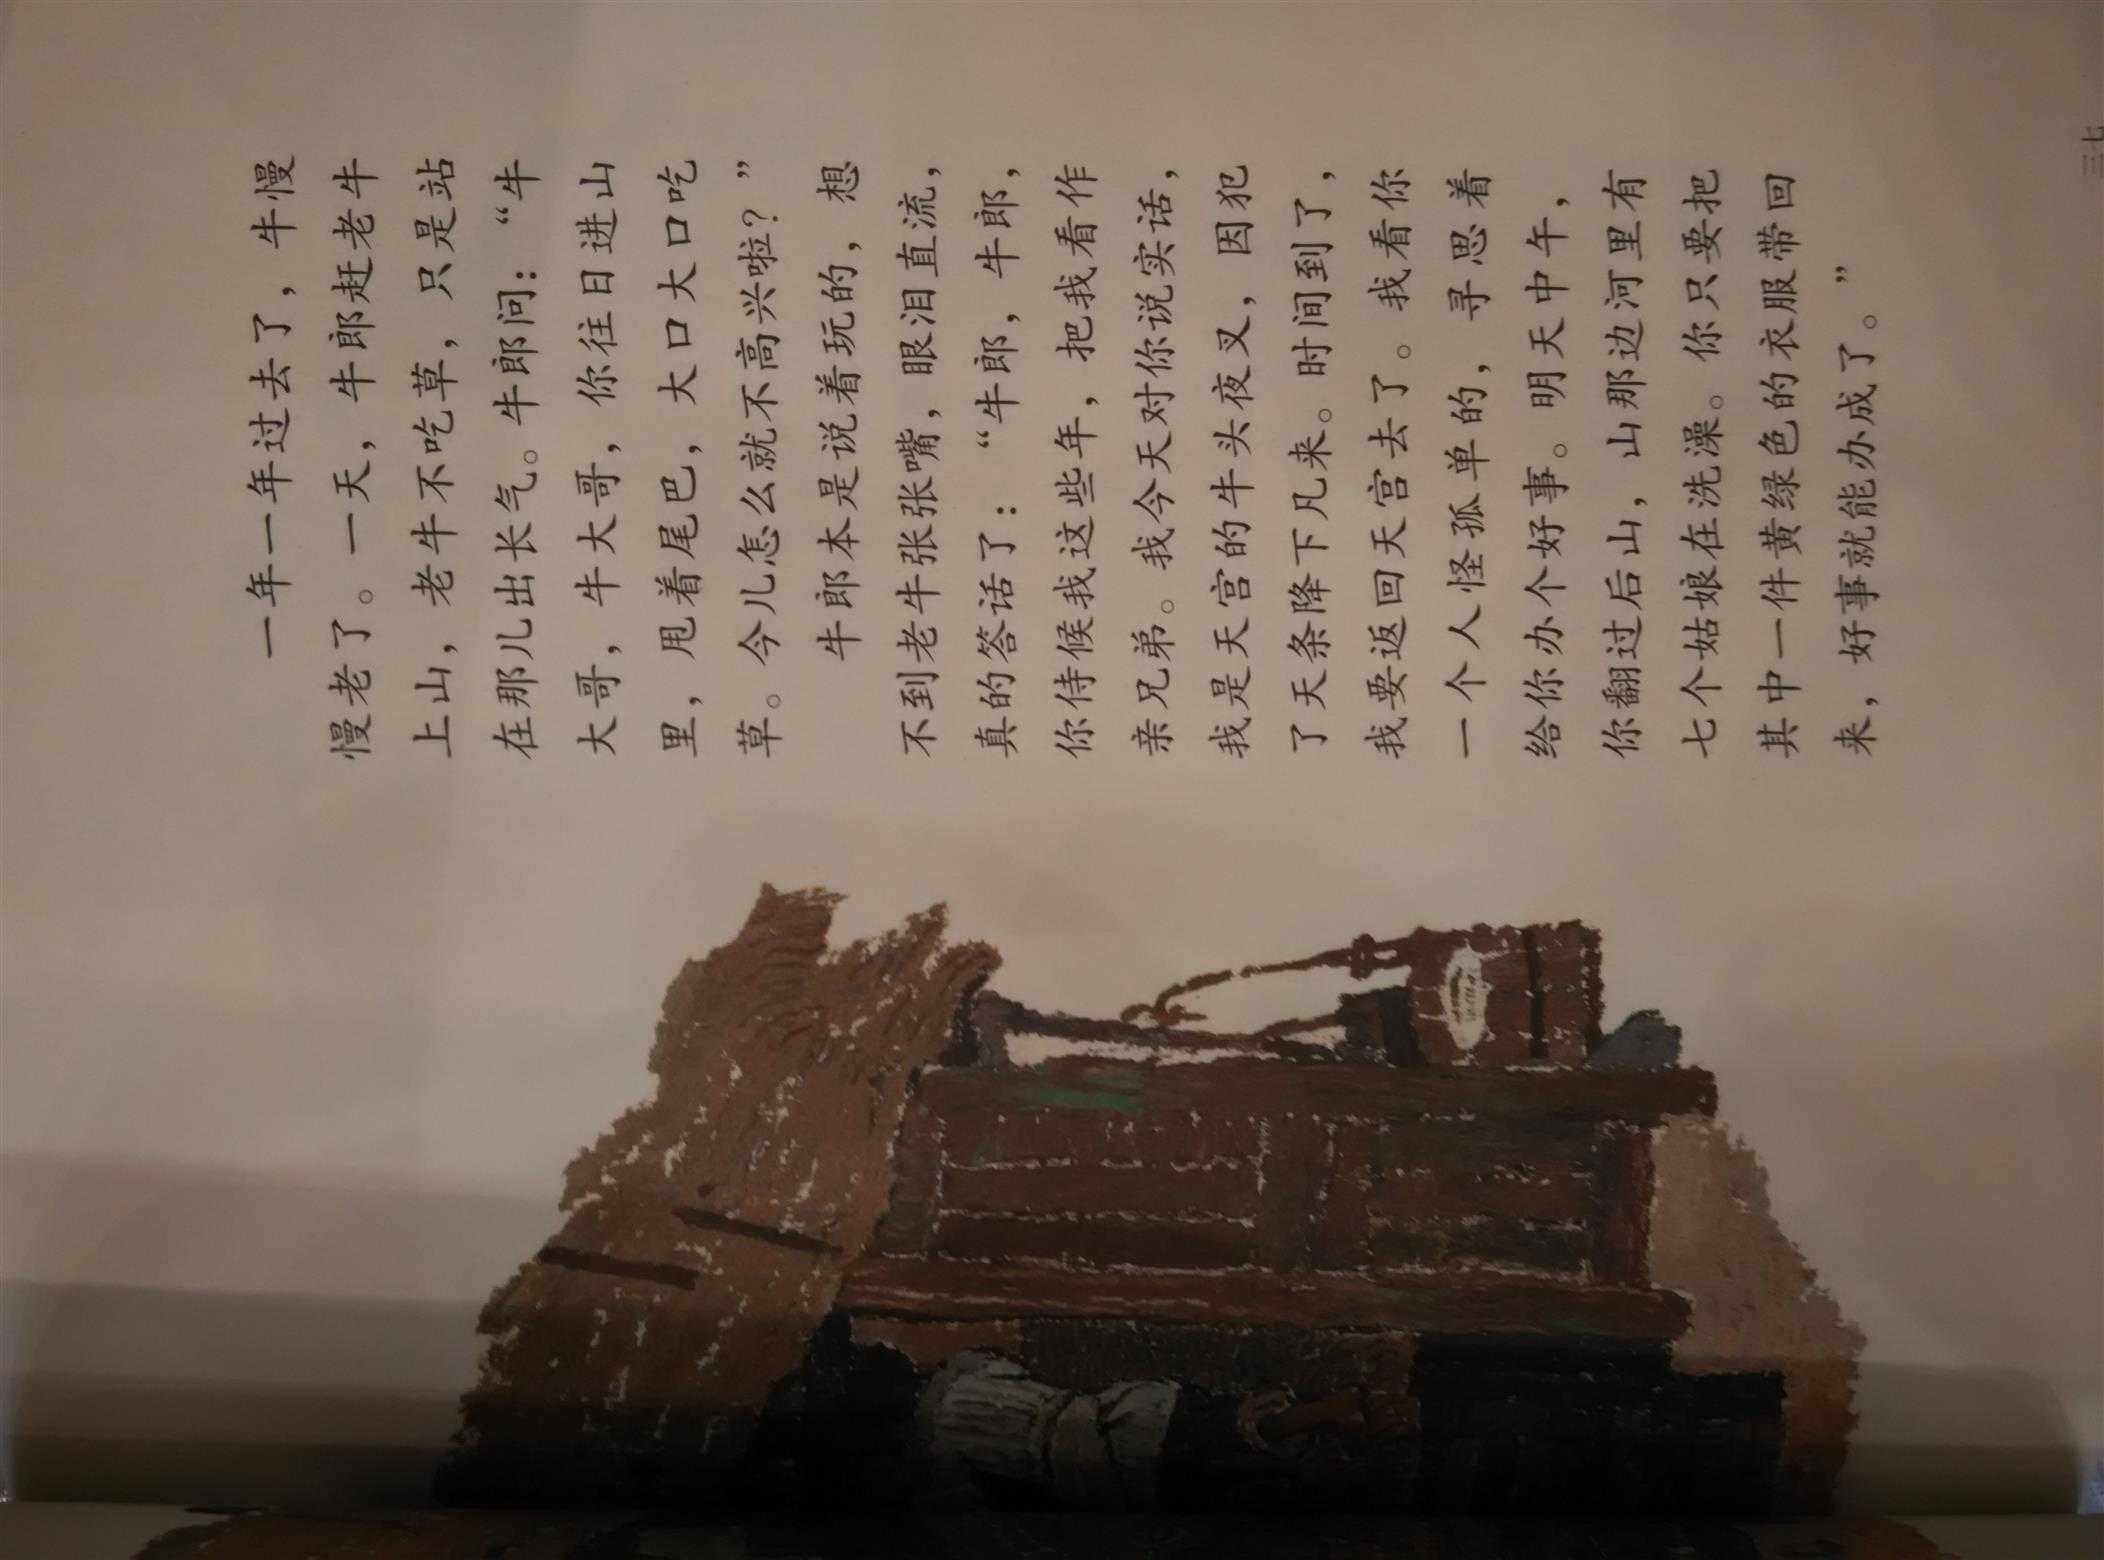 一年一年过去了，牛慢
慢老了。一天，牛郎赶老牛
上山，老牛不吃草，只是站
在那儿出长气。牛郎问：“牛
大哥，牛大哥，你往日进山
里，甩着尾巴，大口大口吃
草。今儿怎么就不高兴啦？”
牛郎本是说着玩的，想
不到老牛张张嘴，眼泪直流，
真的答话了：“牛郎，牛郎，
你侍候我这些年，把我看作
亲兄弟。我今天对你说实话，
我是天宫的牛头夜叉，因犯
了天条降下凡来。时间到了，
我要返回天宫去了。我看你
一个人怪孤单的，寻思着
给你办个好事。明天中午，
你翻过后山，山那边河里有
七个姑娘在洗澡。你只要把
其中一件黄绿色的衣服带回
来，好事就能办成了。”
三七